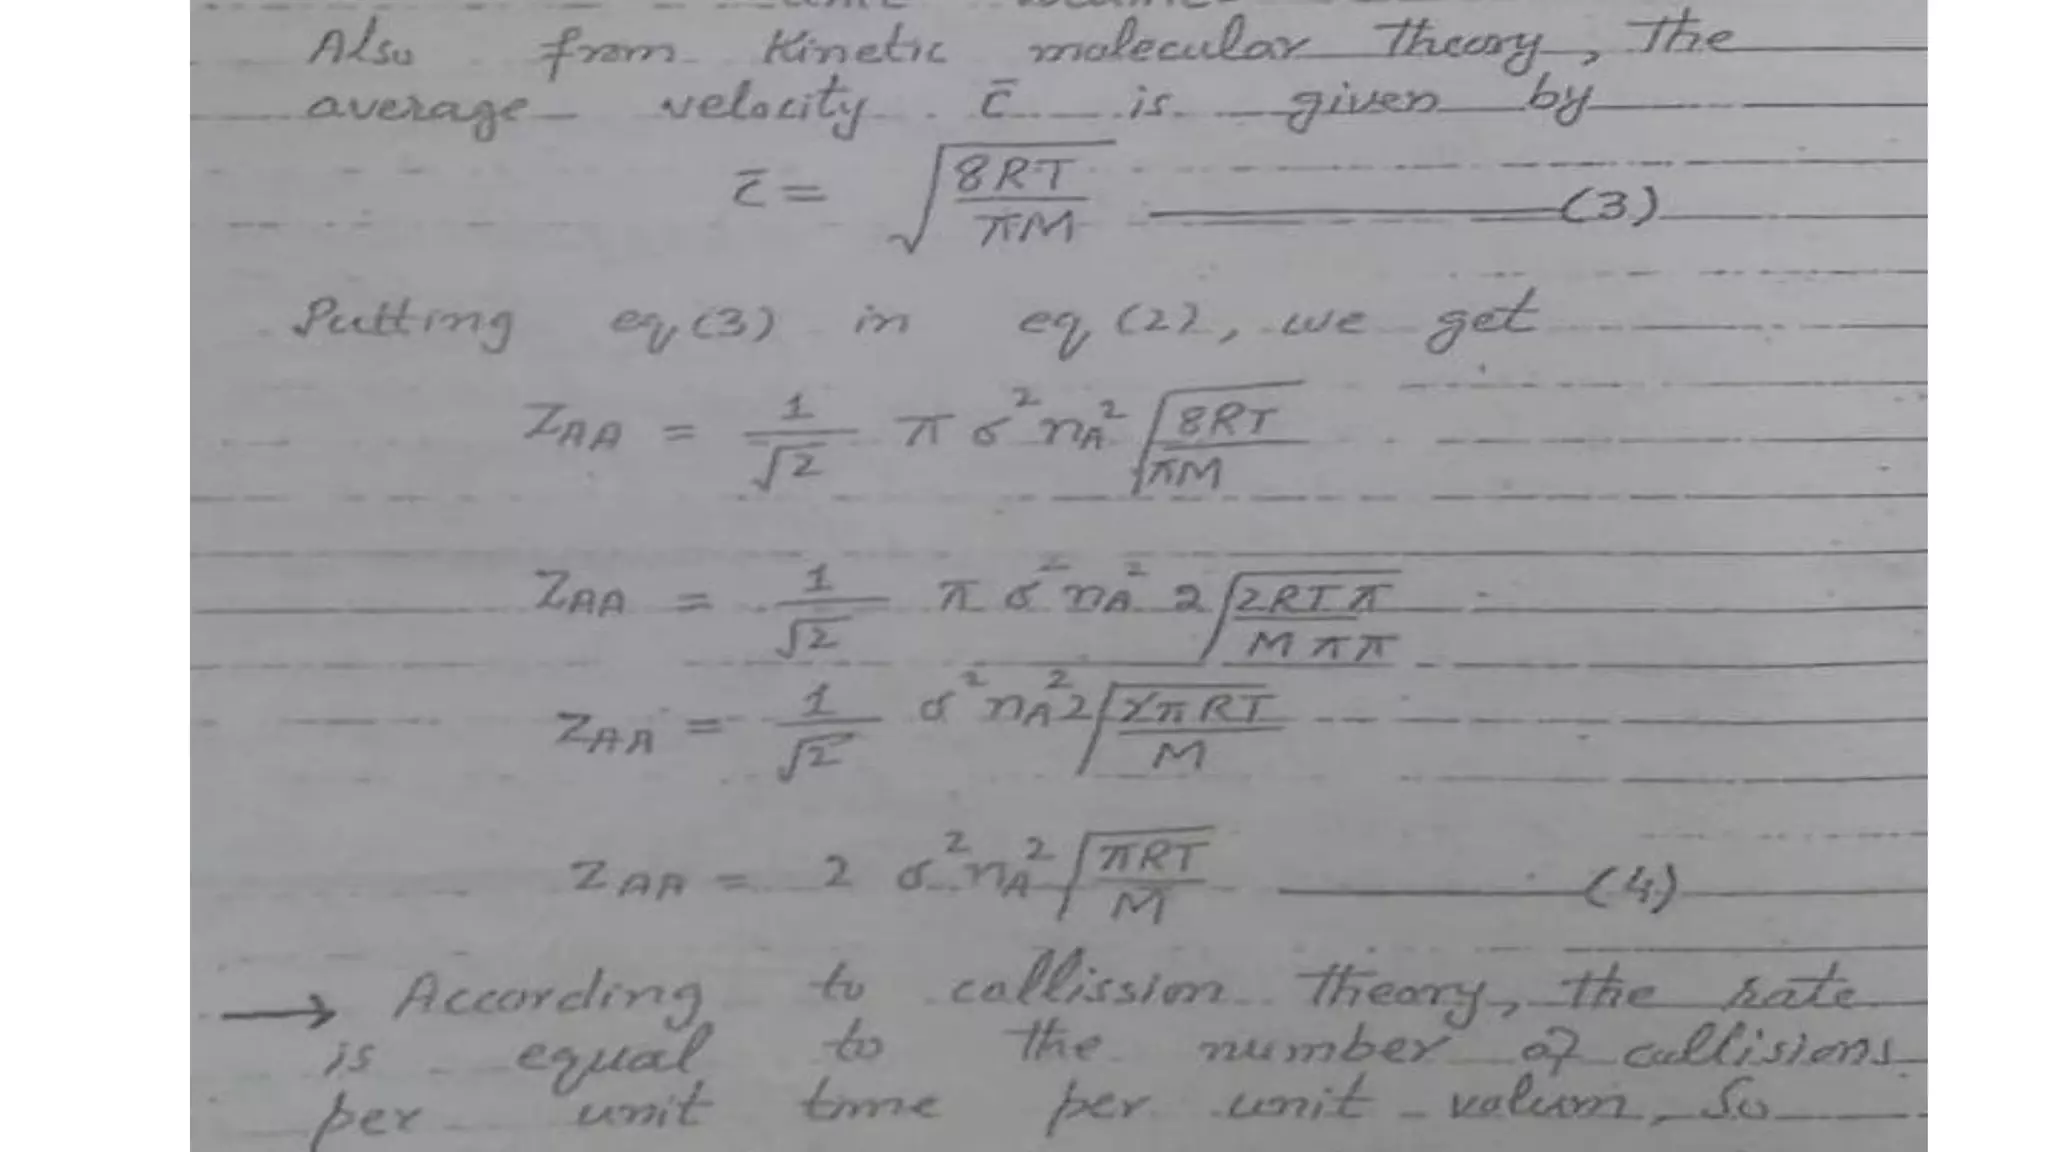 Also from Kinetic molecular theory, the
average velocity c̄ is given by
c̄ = √(8RT/πM) (3)
Putting eq (3) in eq (2), we get
Z_AA = 1/√2 π σ² n_A² √(8RT/πM)
Z_AA = 1/√2 π σ² n_A² 2 √(2RTπ/Mππ)
Z_AA = 1/√2 σ² n_A² 2 √(2πRT/M)
Z_AA = 2 σ² n_A² √(πRT/M) (4)
→ According to collission theory, the rate
is equal to the number of collisions
per unit time per unit volum, So